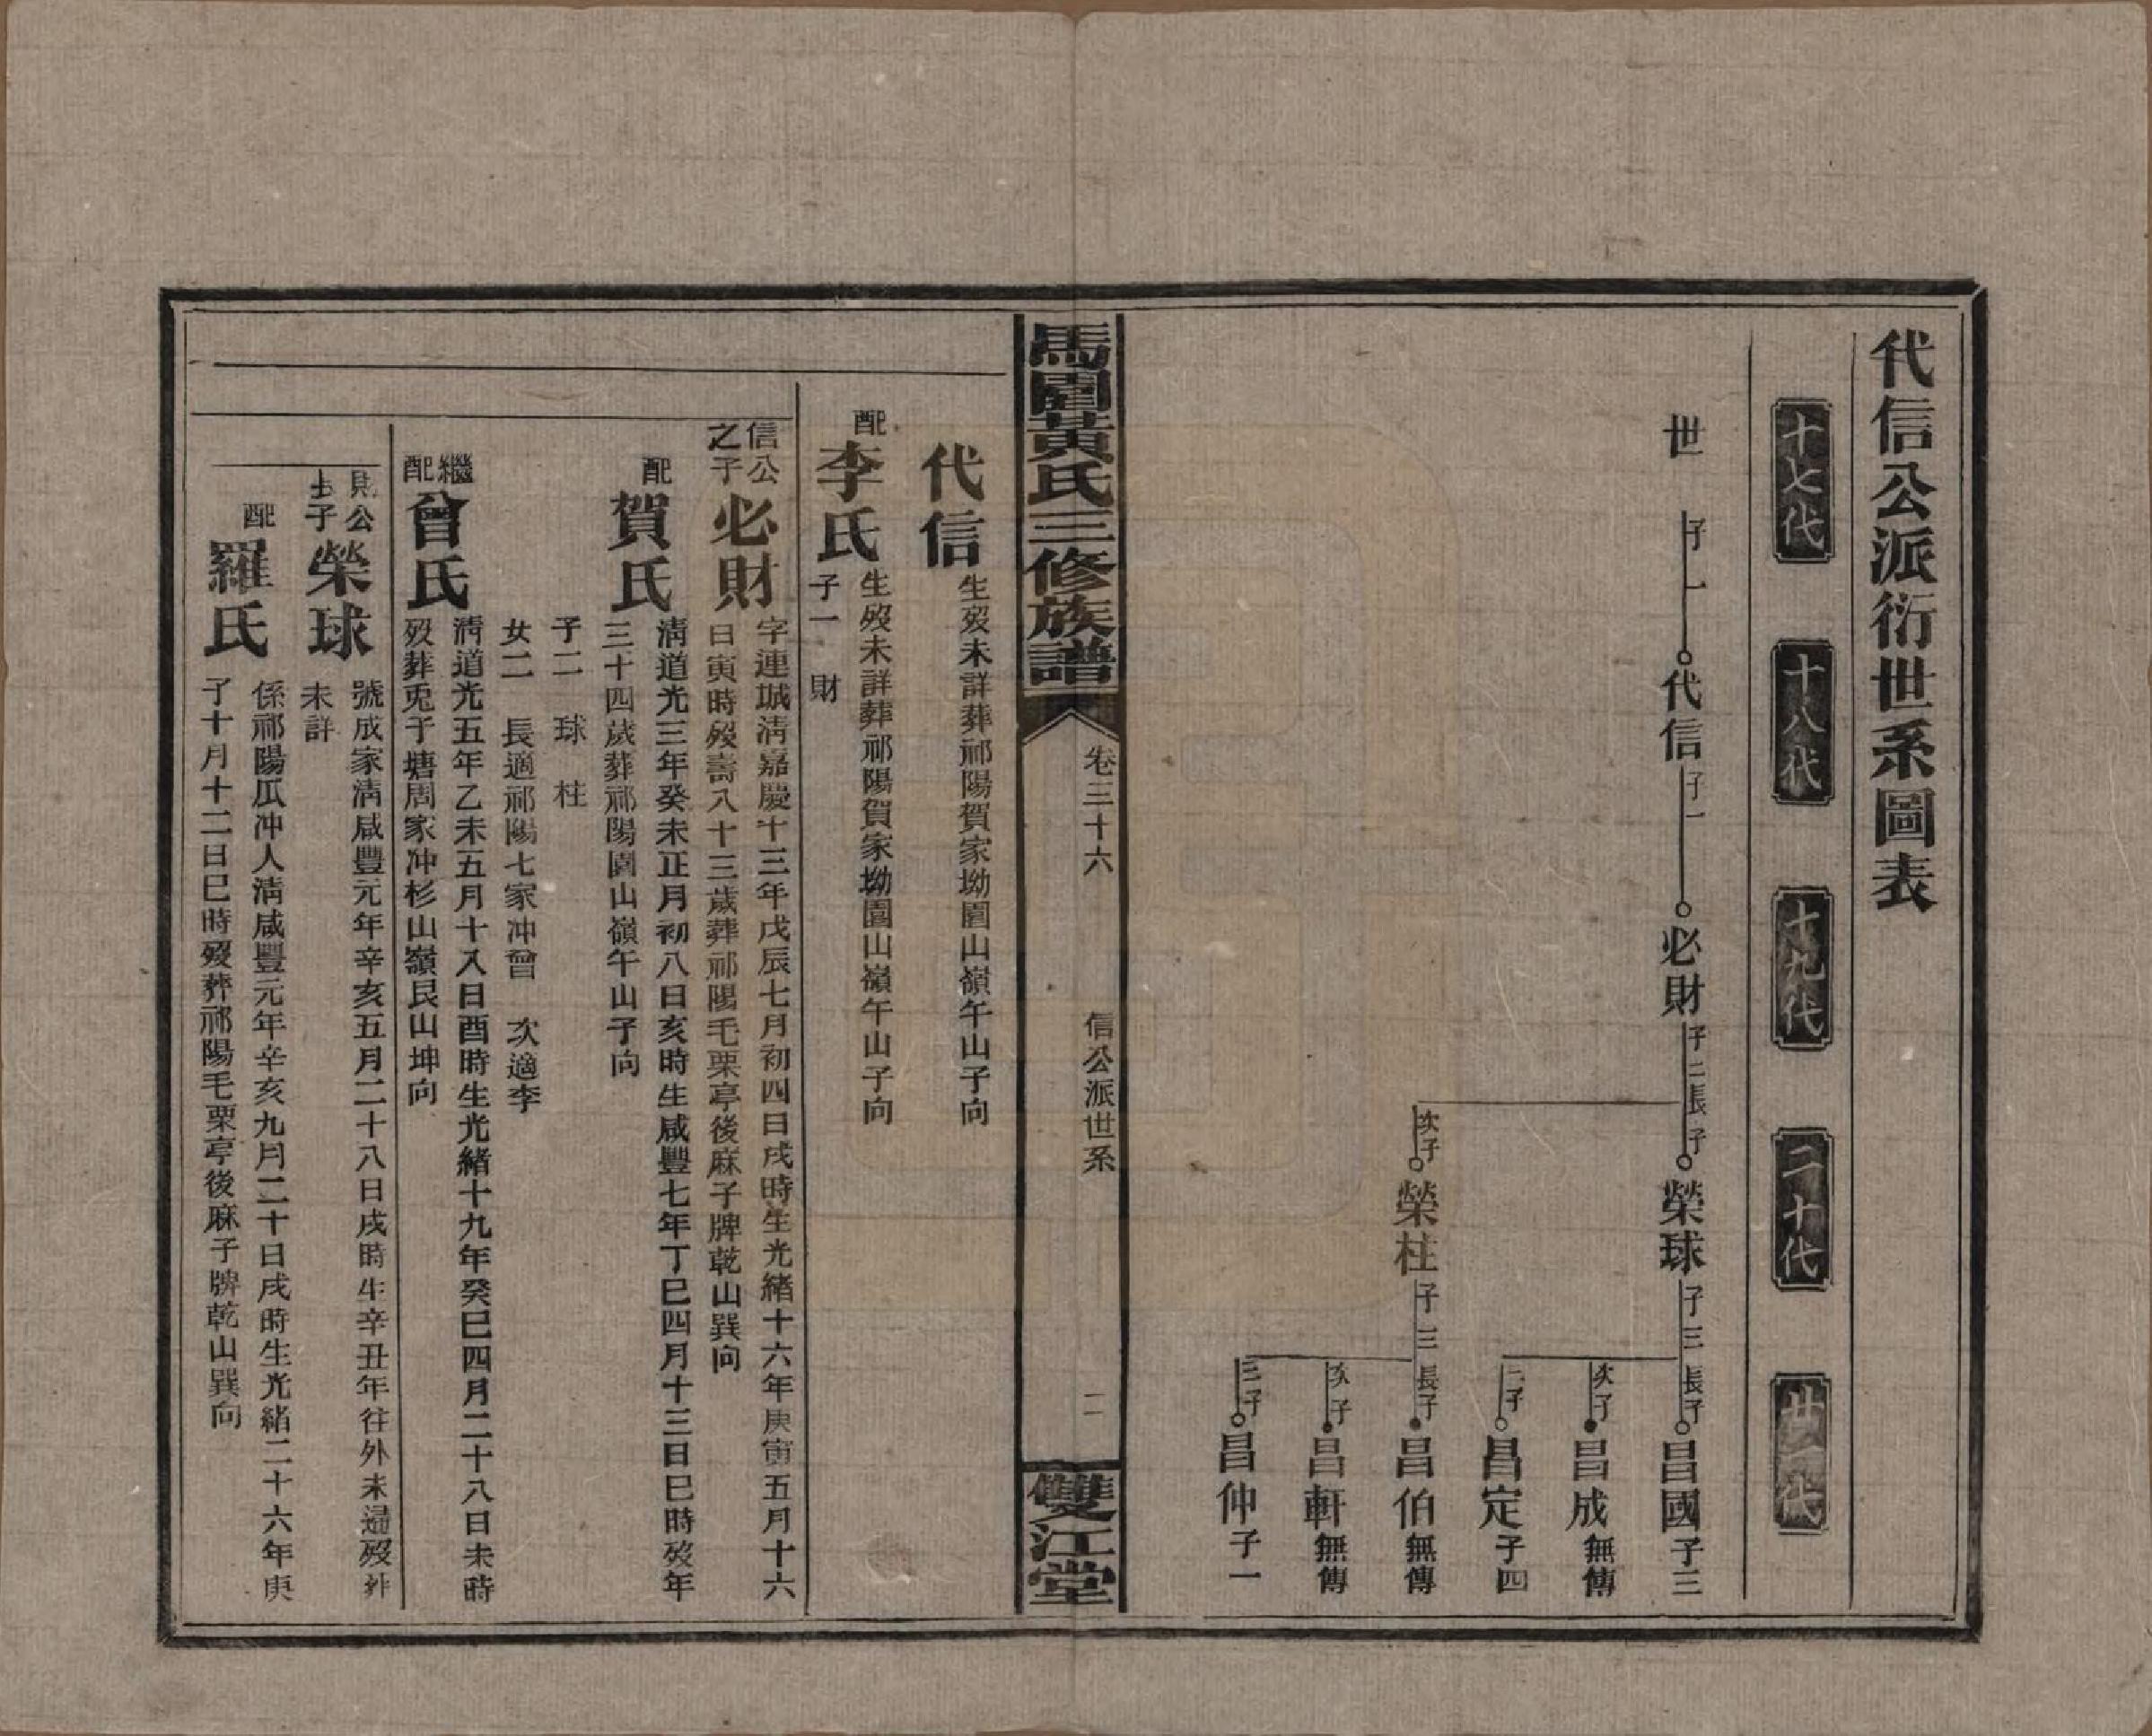 代信公派衍世系圖表
十七代
十八代
十九代
二十代
廿一代
世 子一 代信 子一 必財 子二 長子 榮球 子三 長子 昌國 子三
次子 昌成 無傳
三子 昌定 子四
次子 榮柱 子三 長子 昌伯 無傳
次子 昌軒 無傳
三子 昌仲 子一
馬園黃氏三修族譜
卷三十六
信公派世系
二
雙江堂
代信
生歿未詳葬祁陽賀家坳園山嶺午山子向
配李氏
生歿未詳葬祁陽賀家坳園山嶺午山子向
子一 財
信公之子必財
字連城清嘉慶十三年戊辰七月初四日戌時生光緒十六年庚寅五月十六
日寅時歿壽八十三歲葬祁陽毛栗亭後麻子牌乾山巽向
配賀氏
清道光三年癸未正月初八日亥時生咸豐七年丁巳四月十三日巳時歿年
三十四歲葬祁陽園山嶺午山子向
子二 球 柱
女二 長適祁陽七家冲曾 次適李
繼配曾氏
清道光五年乙未五月十八日酉時生光緒十九年癸巳四月二十八日未時
歿葬兎子塘周家冲杉山嶺艮山坤向
財公長子榮球
號成家清咸豐元年辛亥五月二十八日戌時生辛丑年往外未歸歿葬
未詳
配羅氏
係祁陽瓜冲人清咸豐元年辛亥九月二十日戌時生光緒二十六年庚
子十月十二日巳時歿葬祁陽毛栗亭後麻子牌乾山巽向